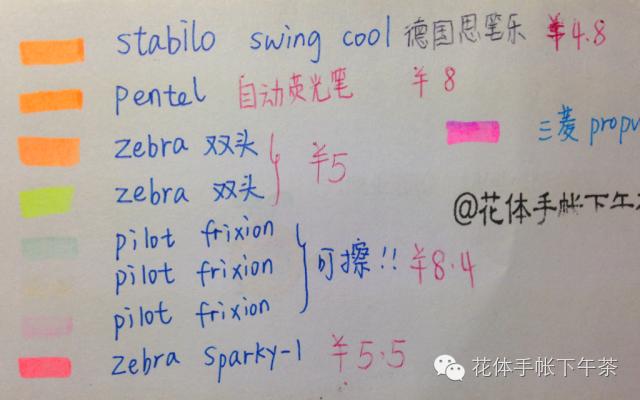 stabilo swing cool 德国思笔乐 ¥4.8
pentel 自动荧光笔 ¥8
zebra 双头
zebra 双头
¥5
三菱 propu
@花体手帐下午
pilot frixion
pilot frixion
pilot frixion
可擦!! ¥8.4
zebra Sparky-1 ¥5.5
花体手帐下午茶